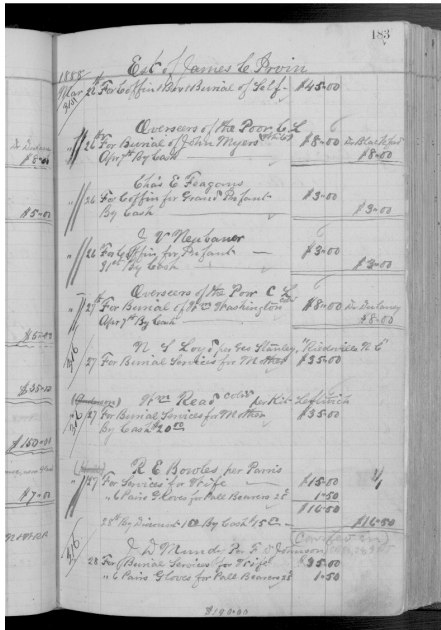 183
1888 Est of James C Povin
Mar 26 For Coffin & Box Burial of Self - $45.00
Overseers of the Poor C L
" 26 For Burial of John Myers (White) $8.00 Dr Blackford
Apr 7th By Cash $8.00
Chas E Feagans
" 26 For Coffin for Grand Infant $3.00
By Cash $3.00
J V Neubauer
" 26 For Coffin for Infant $3.00
31st By Cash $3.00
Overseers of the Poor C L
" 27 For Burial of Wm Washington Cold $8.00 Dr Dulaney
Apr 7th By Cash $8.00
N S Loyd per Geo Stanley, "Reidsville N C"
27 For Burial Services for Mother $35.00
Wm Read Cold per Kit Leftwich
" 27 For Burial Services for Mother $35.00
By Cash $20.00
R E Bowles, per Parris
" 27 For Services for Wife $15.00
" 6 Pairs Gloves for Pall Bearers 25 1.50
$16.50
28th By Discount 1.50 By Cash 15.00 $16.50
J D Mundy Per F Johnson
28 For Burial Services for Wife $35.00
" 6 Pairs Gloves for Pall Bearers 25 1.50
$5.00
$35.00
$150.00
$7.00